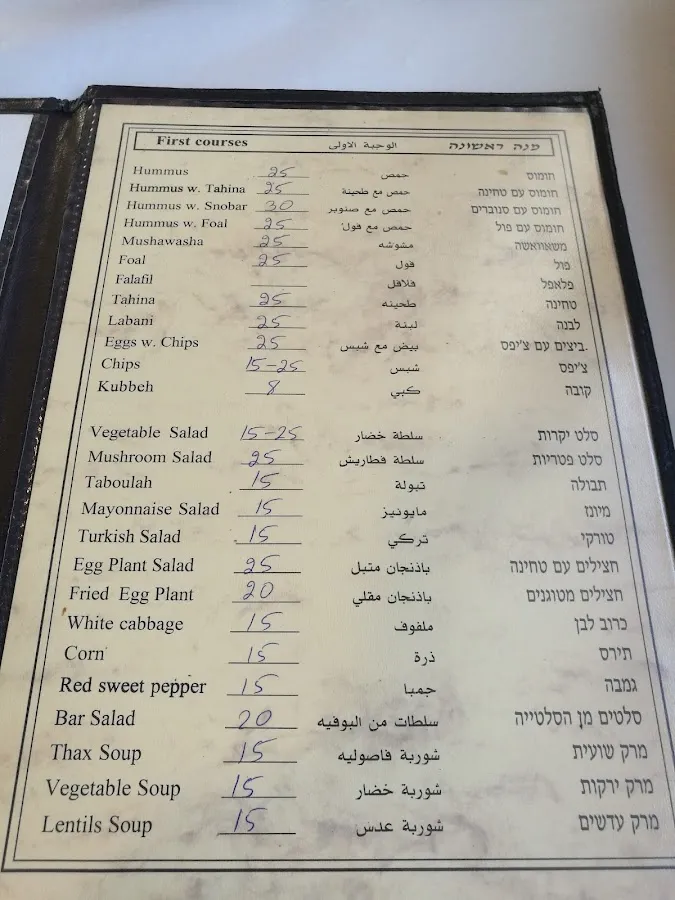 First courses الوجبة الاولى מנה ראשונה
Hummus 25 حمص חומוס
Hummus w. Tahina 25 حمص مع طحينة חומוס עם טחינה
Hummus w. Snobar 30 حمص مع صنوبر חומוס עם סנוברים
Hummus w. Foal 25 حمص مع فول חומוס עם פול
Mushawasha 25 مشوشه משאוואשה
Foal 25 فول פול
Falafil فلافل פלאפל
Tahina 25 طحينه טחינה
Labani 25 لبنة לבנה
Eggs w. Chips 25 بيض مع شبس ביצים עם צ'יפס.
Chips 15-25 شبس צ'יפס
Kubbeh 8 كبي קובה
Vegetable Salad 15-25 سلطة خضار סלט יקרות
Mushroom Salad 25 سلطة فطاريش סלט פטריות
Taboulah 15 تبولة תבולה
Mayonnaise Salad 15 مايونيز מיונז
Turkish Salad 15 تركي טורקי
Egg Plant Salad 25 باذنجان متبل חצילים עם טחינה
Fried Egg Plant 20 باذنجان مقلي חצילים מטוגנים
White cabbage 15 ملفوف כרוב לבן
Corn 15 ذرة תירס
Red sweet pepper 15 جمبا גמבה
Bar Salad 20 سلطات من البوفيه סלטים מן הסלטייה
Thax Soup 15 شوربة فاصوليه מרק שועית
Vegetable Soup 15 شوربة خضار מרק ירקות
Lentils Soup 15 شوربة عدس מרק עדשים